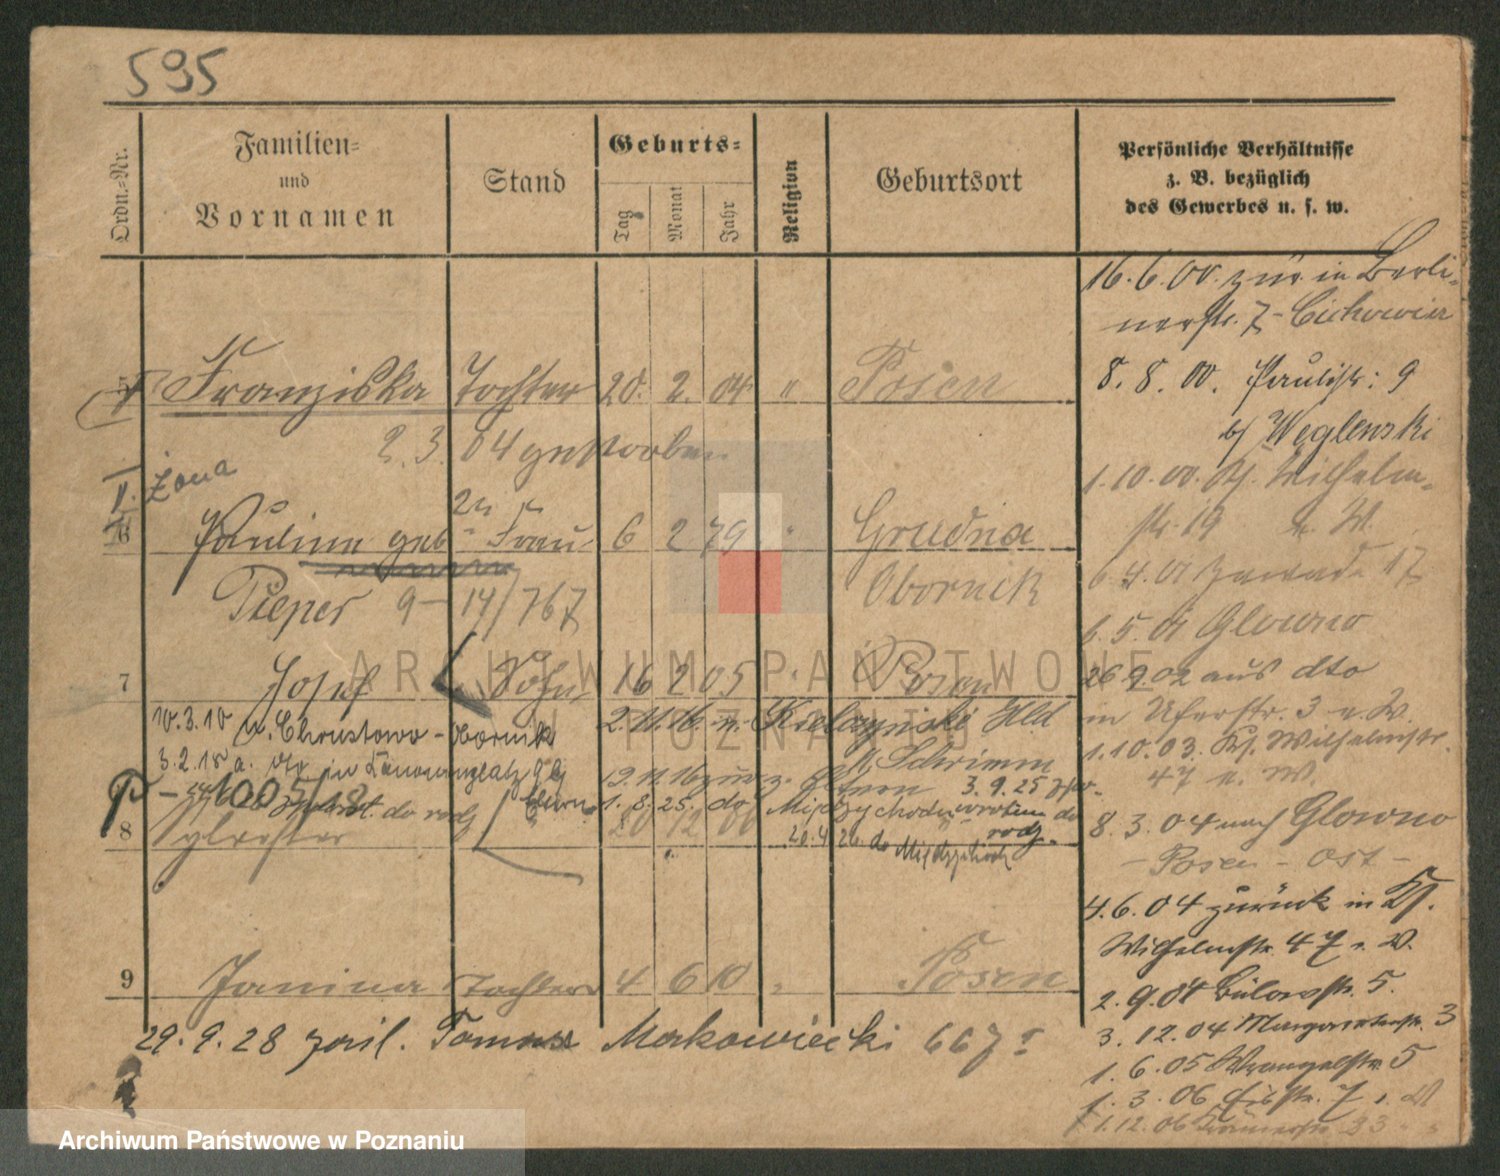 595
Ordn.-Nr.
Familien-
und
Vornamen
Stand
Geburts-
Tag
Monat
Jahr
Religion
Geburtsort
Persönliche Verhältnisse
z. B. bezüglich
des Gewerbes u. s. w.
Franziska Tochter 20. 2. 04 " Posen
2. 3. 04 gestorben
II. Żona
6 Pauline geb. 2te Frau 6 2 79 " Grudna
Pieper 9-14/767 Obornik
7 Josef Sohn 16 2 05 " Posen
10.3.10 n. Chrustowo - Obornik 2.11.16 n.
3.2.15 a.
n Schrimm
19.11.16 zur. z. Eltern 3.9.25
1005/18 do rodz 1. 8. 25. do Międzychodu do
rodz.
8 20 12 06 20.4.26. do
9 Janina Tochter 4 6 10 " Posen
29. 9. 28 Tomasz Makowiecki 667
16. 6. 00. zur. in Berli-
nerstr. 7
8. 8. 00. Paulistr: 9
b/ Weglenski
1. 10. 00. Kf. Wilhelm-
str. 19 n. W.
6. 4. 01 Zawade 17
6. 5. 01 Glowno
26 9 02 aus dto
in Uferstr. 3 n. W.
1. 10. 03. Kf. Wilhelmstr.
47 n. W.
8. 3. 04 nach Glowno
- Posen - Ost -
4. 6. 04 zurück in Kf.
Wilhelmstr. 47 n. W.
2. 9. 04 Bülowstr. 5.
3. 12. 04 Margaretenstr. 3
1. 6. 05 Wrangelstr. 5
1. 3. 06 7 n. W
1. 12. 06 33
ARCHIWUM PAŃSTWOWE
W POZNANIU
Archiwum Państwowe w Poznaniu